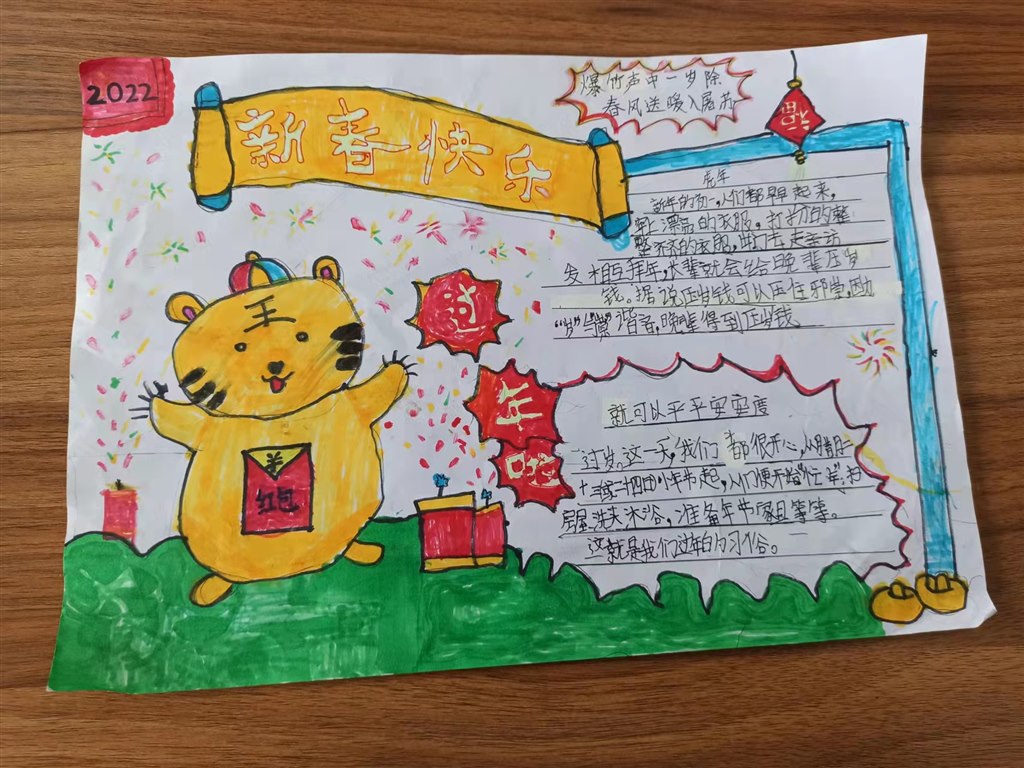 2022
新春快乐
爆竹声中一岁除
春风送暖入屠苏
福
虎年
新年的初一,人们都早早起来,
漂亮的衣服,打扮的整
整齐齐的衣服,出门去走亲访
友相互拜年,长辈就会给晚辈压岁
钱。据说压岁钱可以压住邪祟,因
“岁”与“祟”谐音,晚辈得到压岁钱
王
过
年
啦
羊
红包
就可以平平安安度
过岁。这一天,我们都很开心,从腊月二
十三或二十四日小年节起,人们便开始“忙年”:扫
房屋洗头沐浴,准备年节家具等等。
这就是我们过年的习俗。